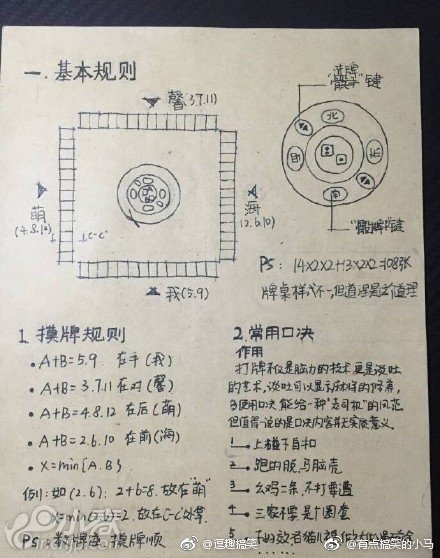 一.基本规则
馨(3.7.11)
萌
(4.8.12)
C-C'
海
(2.6.10)
我(5.9)
"骰子"键
北
西
东
南
PS: 14×2×2+13×2×2=108张
牌桌样式不一,但道理是这个道理
1. 摸牌规则
• A+B=5.9 在手(我)
• A+B=3.7.11 在对(馨)
• A+B=4.8.12 在后(萌)
• A+B=2.6.10 在前(海)
• X=min{A.B}
例:如(2.6): 2+b=8. 放在"萌"
X=min{2,6}=2. 放在C-C'处拿.
PS: 数牌逆,摸牌顺
2. 常用口决
作用
打牌不仅是脑力的技术更是谈吐
的艺术,谈吐可以显示麻样的修养,
多使用口决能给一种"老司机"的风范
但值得一说的是口决内容并无实质意义.
1. 上碰下自和
2. 跑的脱,马脑壳
3. 幺鸡二条,不打要遭
4. 三家不要是个圈套
5
@逗趣搞笑
@有点搞笑的小马